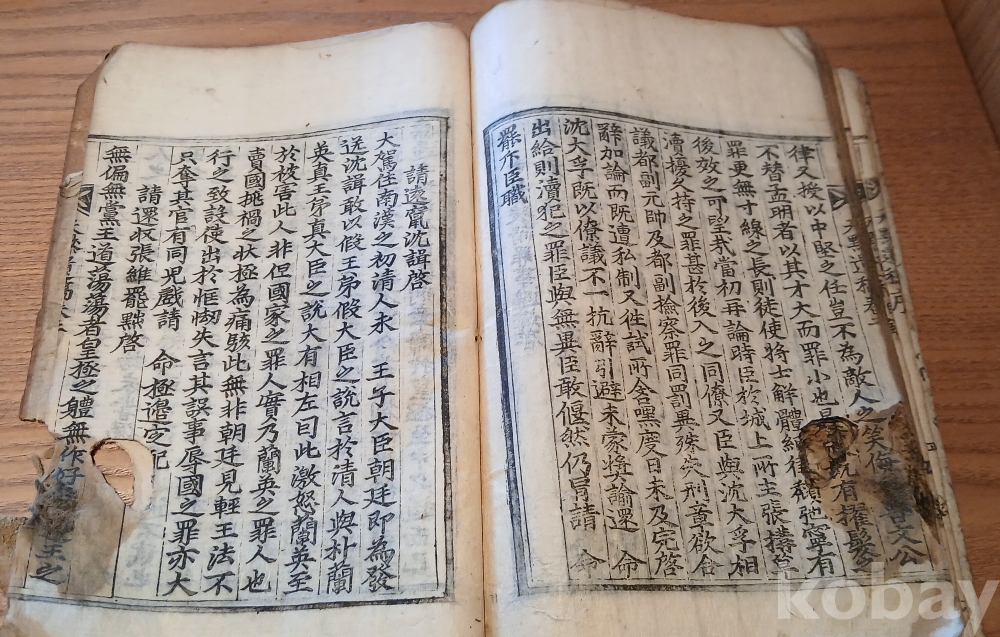 律又授以中堅之任豈不為敵人之笑侮
不替孟明者以其才大而罪小也是
罪更無寸線之長則徒使將士解體紀律頹弛寧有
後效之可望哉當初再論時臣於城上所主張
瀆擾久持之罪甚於後入之同僚又臣與沈大孚相
議都副元帥及都副檢察罪同罰異殊失刑章欲合
辭加論而既遭私制又往試所含嘿度日未及完啓
沈大孚既以僚議不一抗辭引避未蒙奬諭還 命
出給則瀆犯之罪臣與無異臣敢偃然仍冒請 命
罷斥臣職
請遠竄沈諿啓
大駕住南漢之初清人求 王子大臣朝廷即為發
送沈諿敢以假王弟假大臣之說言於清人與朴蘭
英真王弟真大臣之說大有相左曰此激怒蘭英至
於被害此人非但國家之罪人實乃蘭英之罪人也
賣國挑禍之狀極為痛駭此無非朝廷見輕王法不
行之致設使出於恇怯失言其誤事辱國之罪亦大
只奪其官有同兒戲請 命極邊定配
請還收張維罷黜啓
無偏無黨王道蕩蕩者皇極之體無作好
kobay